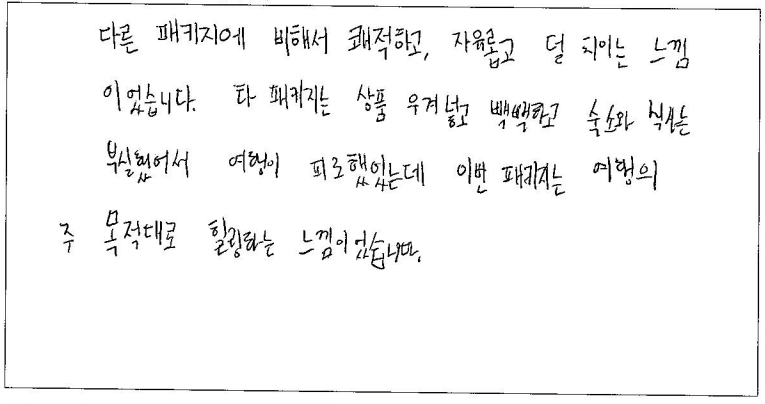 다른 패키지에 비해서 쾌적하고, 자유롭고 덜 치이는 느낌
이었습니다. 타 패키지는 상품 우겨넣고 빽빽하고 숙소와 식사는
부실했어서 여행이 피로했었는데 이번 패키지는 여행의
주 목적대로 힐링하는 느낌이었습니다.